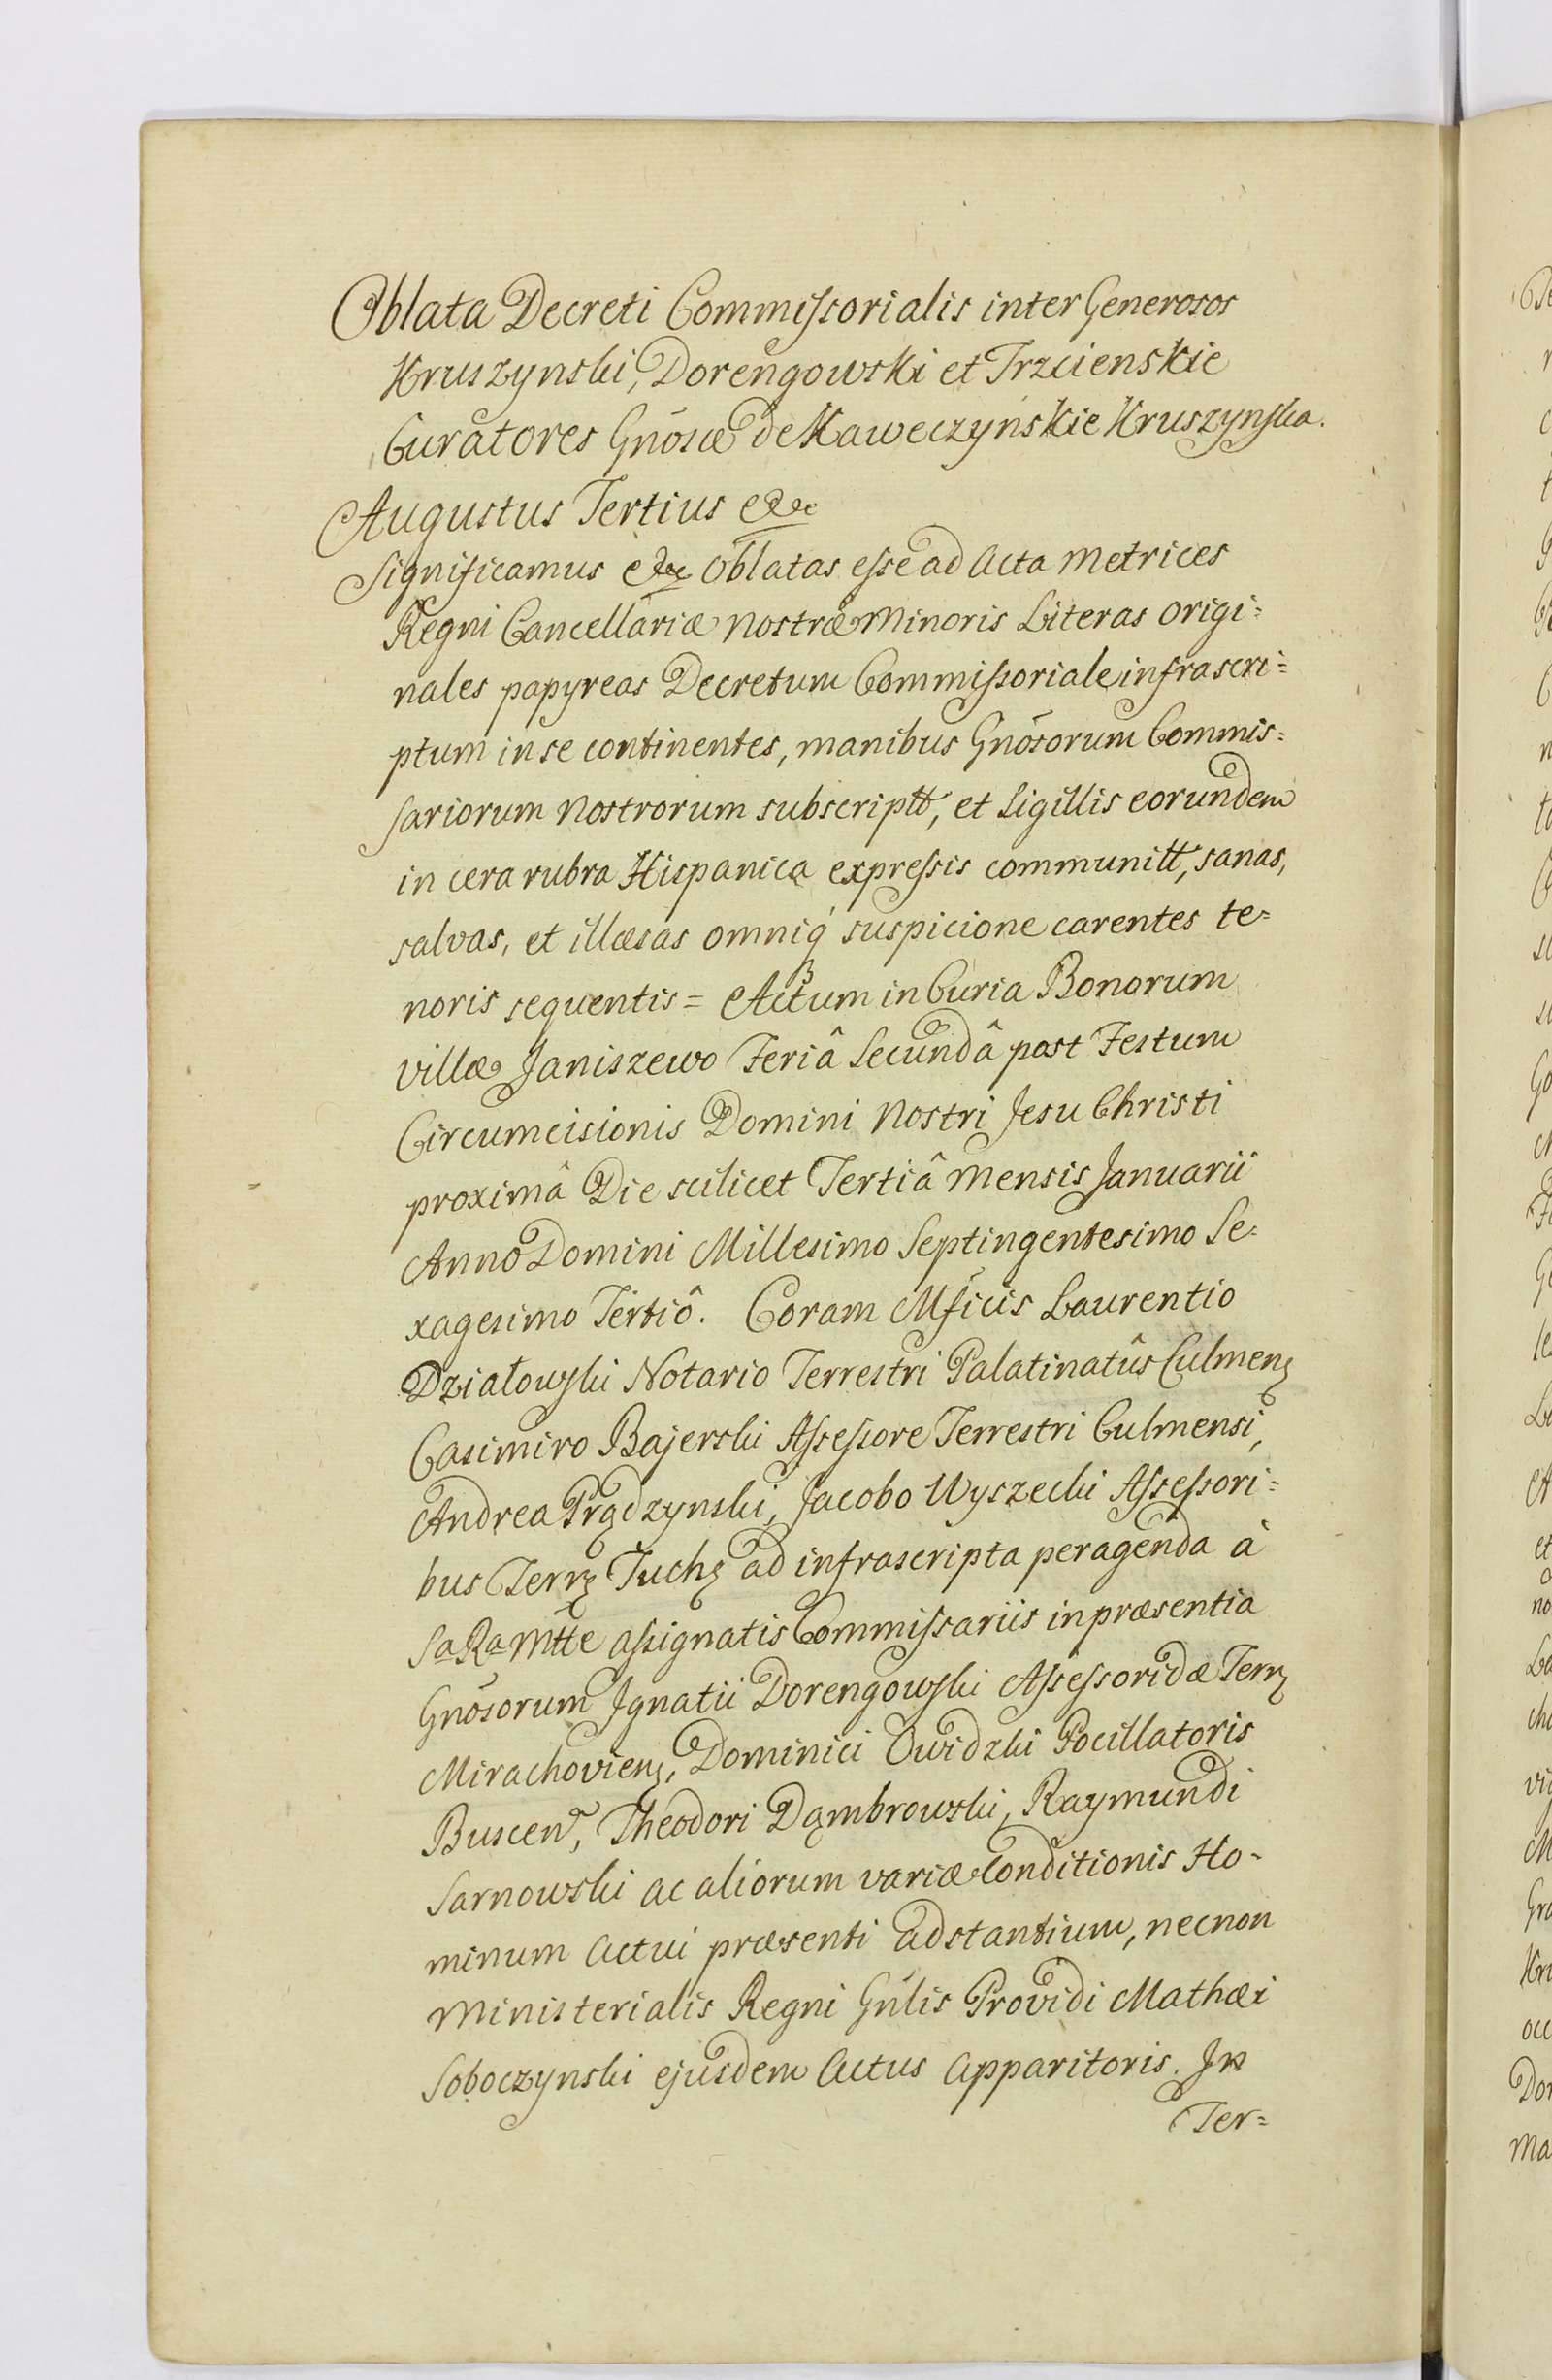 Oblata Decreti Commiſsorialis inter Generosos
Kruszynski, Dorengowski et Trzcienskie
Curatores Gnosæ de Kaweczyńskie Kruszynſka.
Augustus Tertius &c
Significamus &c Oblatas eſse ad Acta Metrices
Regni Cancellariæ Nostræ Minoris Literas origi=
nales papyreas Decretum Commiſsoriale infrascri=
ptum in se continentes, manibus Gnosorum Commis=
sariorum Nostrorum subscriptt, et Sigillis eorundem
in cera rubra Hispanica expreſsis communitt, sanas,
salvas, et illæsas omniq suspicione carentes te=
noris sequentis = Actum in Curia Bonorum
villæ Janiszewo Feriâ Secundâ post Festum
Circumcisionis Domini Nostri Jesu Christi
proximâ Die scilicet Tertiâ Mensis Januarii
Anno Domini Millesimo Septingentesimo Se=
xagesimo Tertiô. Coram Mficis Laurentio
Działowſki Notario Terrestri Palatinatûs Culmens
Casimiro Bajerski Aſseſsore Terrestri Culmensi,
Andrea Prądzynski, Jacobo Wyszecki Aſseſsori=
bus Terrs Tuchs ad infrascripta peragenda à
Sa Ra Mtte aſsignatis Commiſsariis in præsentia
Gnosorum Ignatii Dorengowſki Aſseſsoridæ Terrs
Mirachoviens, Dominici Owidzki Pocillatoris
Buscen, Theodori Dąmbrowski, Raymundi
Sarnowski ac aliorum variæ Conditionis Ho=
minum Actui præsenti adstantium, necnon
Ministerialis Regni Gnlis Providi Mathæi
Soboczynski ejusdem Actus Apparitoris. In
Ter=